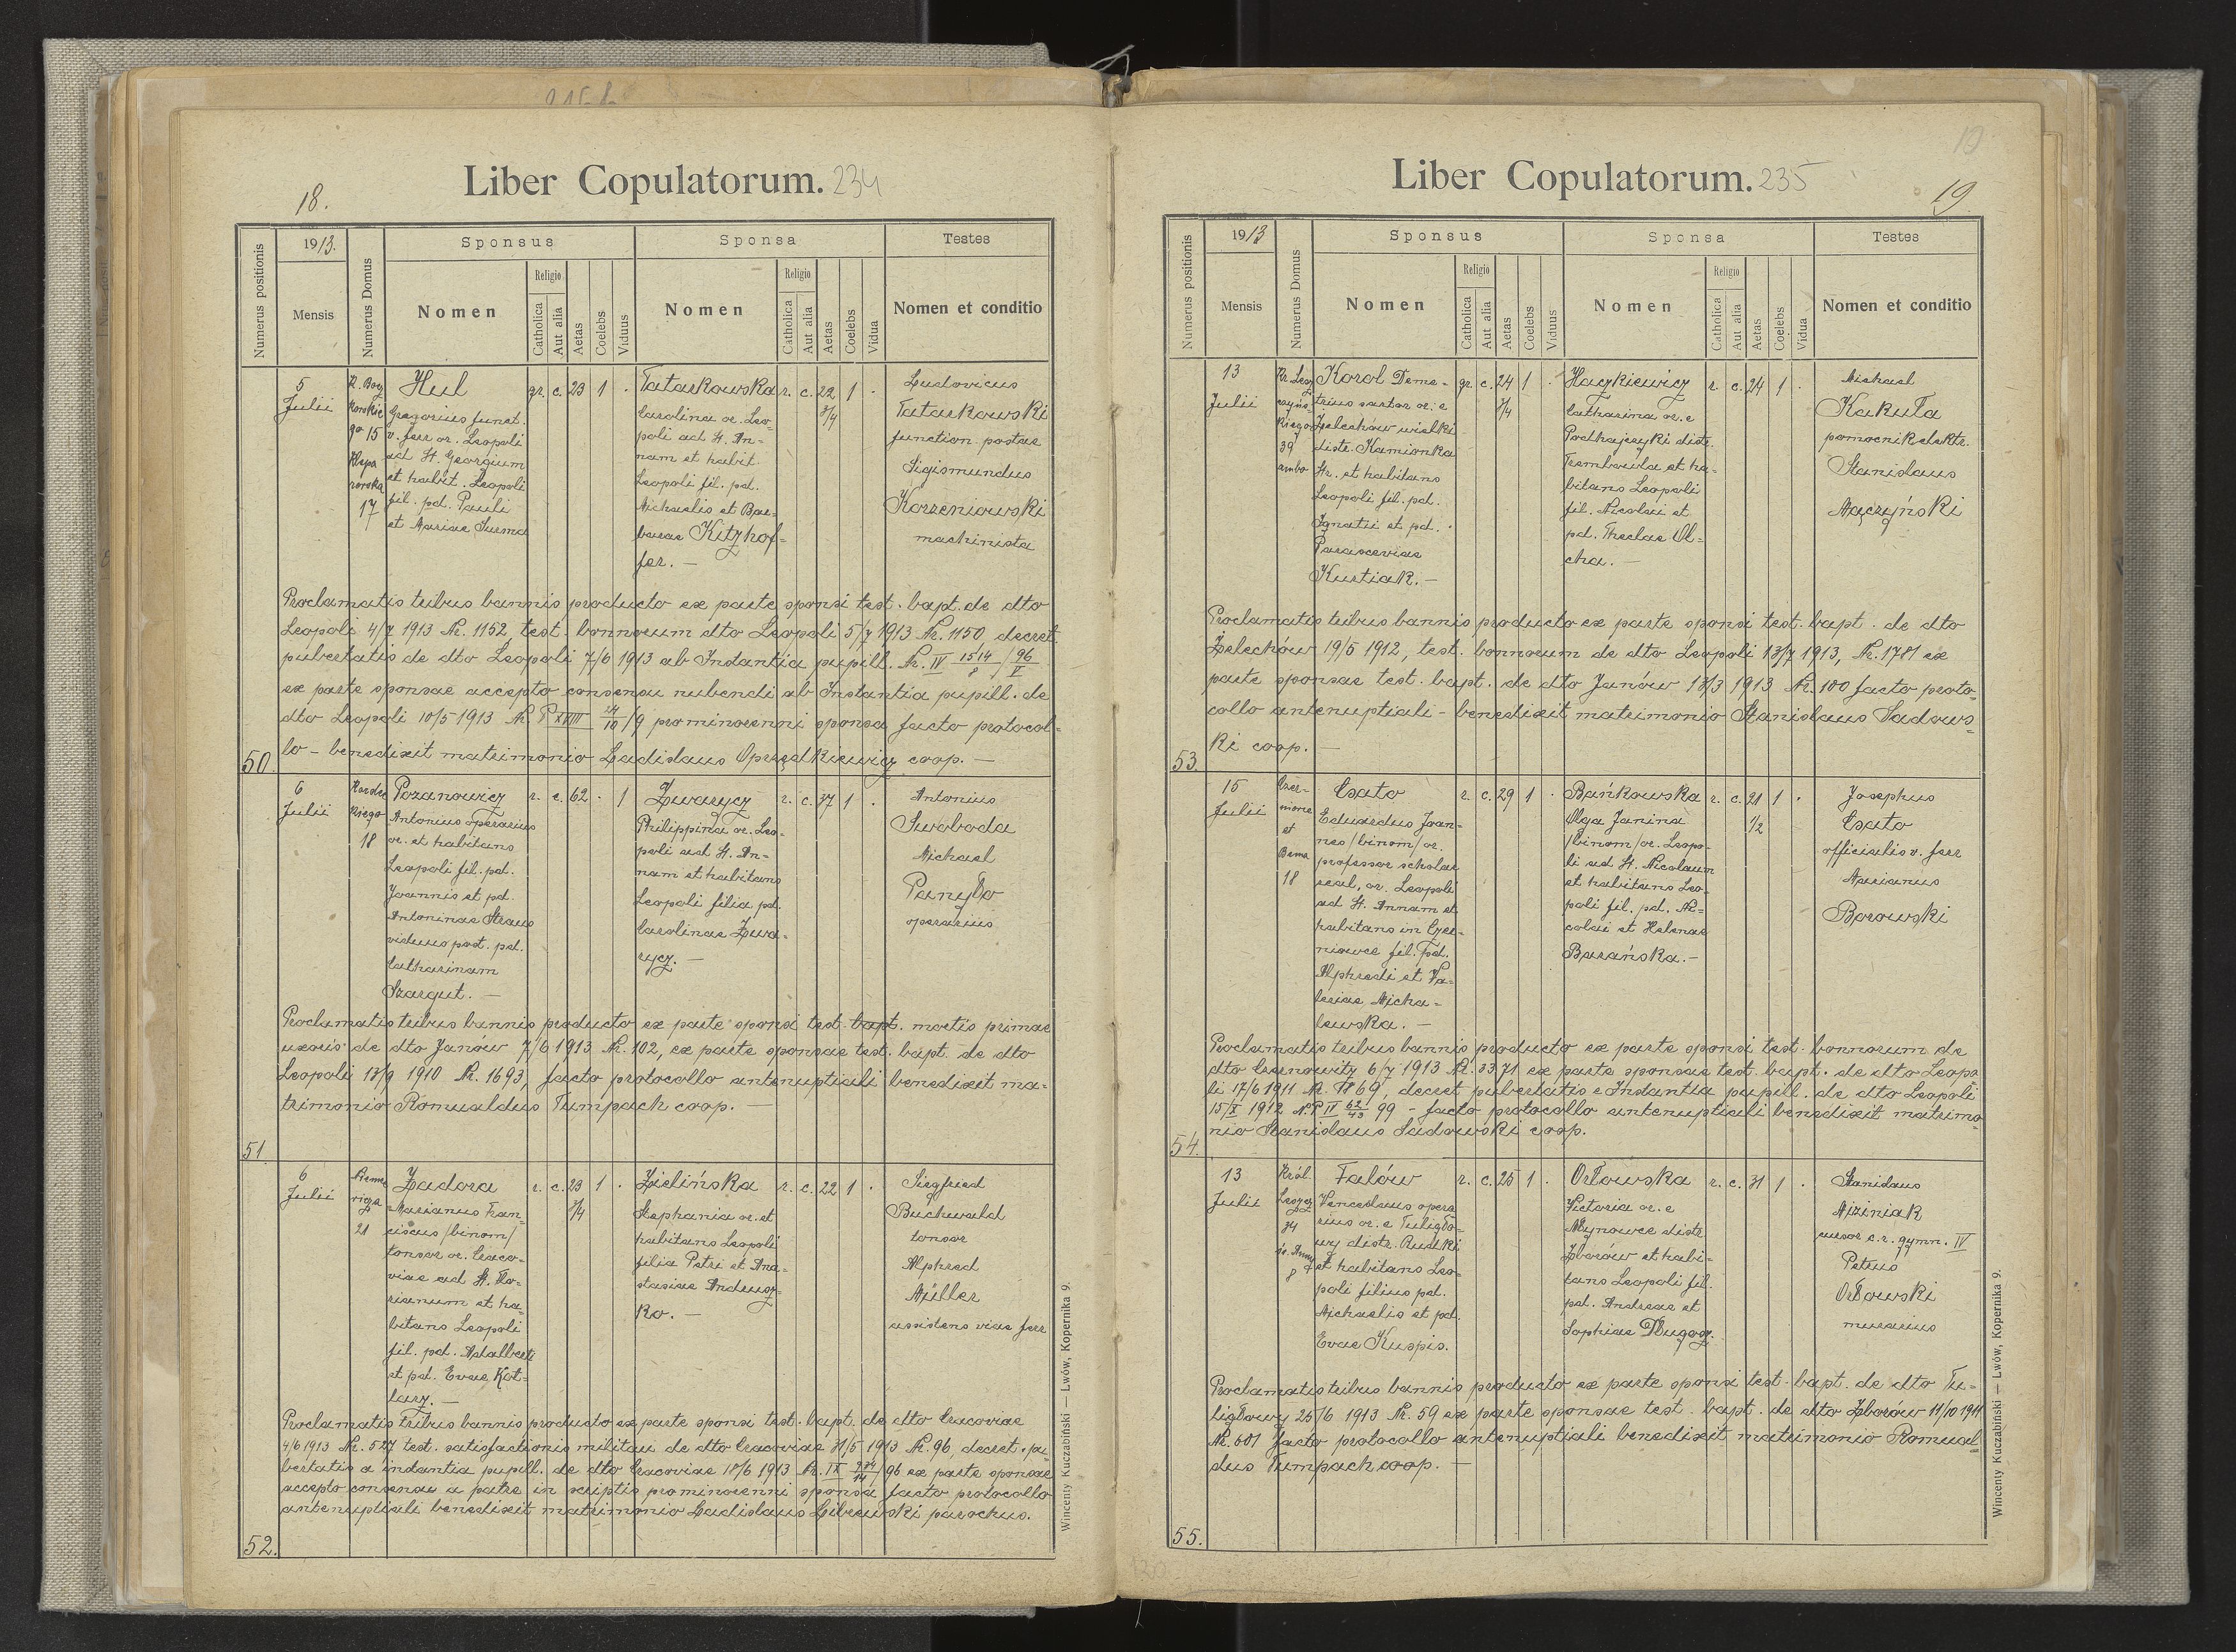 Liber Copulatorum. 234
18.
Numerus positionis
1913.
Mensis
Numerus Domus
Sponsus
Nomen
Religio
Catholica
Aut alia
Aetas
Coelebs
Viduus
Sponsa
Nomen
Religio
Catholica
Aut alia
Aetas
Coelebs
Vidua
Testes
Nomen et conditio
50.
5
Julii
go 15
17
Hul
Gregorius funct.
v. ferr or. Leopoli
ad St. Georgium
et habit. Leopoli
fil. pd. Pauli
et Mariae Surma
gr. c. 23 1 .
Tatarkowska
Carolina or. Leo-
poli ad St. An-
nam et habit.
Leopoli fil. pd.
Michaelis et Bar-
barae Kitzhof-
fer. —
r. c. 22 1 .
3/4
Ludovicus
Tatarkowski
function. postae
Sigismundus
Korzeniowski
machinista
Proclamatis tribus bannis producto ex parte sponsi test. bapt. de dto
Leopoli 4/7 1913 Nr. 1152, test. bannorum dto Leopoli 5/7 1913 Nr. 1150, decret.
pubertatis de dto Leopoli 7/6 1913 ab Instantia pupill. Nr. IV 1514/8 /96/V
ex parte sponsae accepto consensu nubendi ab Instantia pupill. de
dto Leopoli 10/5 1913 Nr. P XVIII 24/10 /9 pro minorenni sponsa, facto protocol-
lo - benedixit matrimonio Ladislaus Oprządkiewicz coop. —
51
6
Julii
18
Pozanowicz
Antonius operarius
or. et habitans
Leopoli fil. pd.
Joannis et pd.
Antoninae Straus
viduus post. pd.
Catharinam
Szargut. —
r. c. 62 . 1
Zwarycz
Philippina or. Leo-
poli ad St. An-
nam et habitans
Leopoli filia pd.
Carolinae Zwa-
rycz. —
r. c. 37 1 .
Antonius
Swoboda
Michael
Panyło
operarius
Proclamatis tribus bannis producto ex parte sponsi test. bapt. mortis primae
uxoris de dto Janów 7/6 1913 Nr. 102, ex parte sponsae test. bapt. de dto
Leopoli 13/9 1910 Nr. 1693, facto protocollo antenuptiali benedixit ma-
trimonio Romualdus Tumpach coop. —
52.
6
Julii
21
Zadora
Marianus Fran-
ciscus /binom/
tonsor or. Craco-
viae ad St. Flo-
rianum et ha-
bitans Leopoli
fil. pd. Adalberti
et pd. Evae Kot-
larz. —
r. c. 23 1 .
3/4
Zielińska
Stephania or. et
habitans Leopoli
filia Petri et Ana-
stasiae Andrusz-
ko. —
r. c. 22 1 .
Siegfried
Buchwald
tonsor
Alphred
Müller
assistens viae ferr
Proclamatis tribus bannis producto ex parte sponsi test. bapt. de dto Cracoviae
4/6 1913 Nr. 527 test. satisfactionis militari de dto Cracoviae 31/5 1913 Nr. 96, decret. pu-
bertatis a instantia pupill. de dto Cracoviae 18/6 1913 Nr. IX 234/14 /96 ex parte sponsae
accepto consensu a patre in scriptis pro minorenni sponsa facto protocollo
antenuptiali benedixit matrimonio Ladislaus Librewski parochus.
Wincenty Kuczabiński — Lwów, Kopernika 9.
Liber Copulatorum. 235
10
19
Numerus positionis
1913
Mensis
Numerus Domus
Sponsus
Nomen
Religio
Catholica
Aut alia
Aetas
Coelebs
Viduus
Sponsa
Nomen
Religio
Catholica
Aut alia
Aetas
Coelebs
Vidua
Testes
Nomen et conditio
53.
13
Julii
39
ambo
Korol Deme-
trius sartor or. e
Żelechów wielki
distr. Kamionka
Str. et habitans
Leopoli fil. pd.
Ignatii et pd.
Parasceviae
Kurtiak. —
gr. c. 24 1 .
3/4
Haczkiewicz
Catharina or. e
Podhajczyki distr.
Trembowla et ha-
bitans Leopoli
fil. Nicolai et
pd. Theclae Ol-
cha. —
r. c. 24 1 .
Michael
Kakuła
pomocnik elektr.
Stanislaus
Mączyński
Proclamatis tribus bannis producto ex parte sponsi test. bapt. de dto
Żelechów 19/5 1912, test. bannorum de dto Leopoli 13/7 1913, Nr. 1781 ex
parte sponsae test. bapt. de dto Janów 13/3 1913 Nr. 100 facto proto-
collo antenuptiali - benedixit matrimonio Stanislaus Sadows-
ki coop. —
54.
15
Julii
Czer-
niowce
et
Bema
18
Csato
Eduardus Joan-
nes /binom/ or.
professor scholae
real, or. Leopoli
ad St. Annam et
habitans in Czer-
niowce fil. pd.
Alphredi et Va-
leriae Micha-
lewska. —
r. c. 29 1 .
Bańkowska
Olga Janina
/binom/ or. Leopo-
li ad St. Nicolaum
et habitans Leo-
poli fil. pd. Ni-
colai et Helenae
Barańska. —
r. c. 21 1 .
1/2
Josephus
Csato
officialis v. ferr
Marianus
Borowski
Proclamatis tribus bannis producto ex parte sponsi test. bannorum de
dto Czernowitz 6/7 1913 Nr. 3371 ex parte sponsae test. bapt. de dto Leopo
li 17/6 1911 Nr. 1869, decret pubertatis e Instantia pupill. de dto Leopoli
15/X 1912 Nr. P IV 62/43 99 - facto protocollo antenuptiali benedixit matrimo-
nio Stanislaus Sadowski coop.
55.
13
Julii
Król.
Leszcz
34
św. Anny
8
Falów
Venceslaus opera
rius or. e Tuligło-
wy distr. Rudki
et habitans Leo-
poli filius pd.
Michaelis et pd.
Evae Kuspis.
r. c. 25 1 .
Orłowska
Victoria or. e
Młynowce distr.
Zborów et habi-
tans Leopoli fil.
pd. Andreae et
Sophiae Długosz.
r. c. 31 1 .
Stanislaus
Miziniak
cursor c.r. gymn. IV
Petrus
Orłowski
murarius
Proclamatis tribus bannis producto ex parte sponsi test. bapt. de dto Tu-
ligłowy 25/6 1913 Nr. 59 ex parte sponsae test. bapt. de dto Zborów 11/10 1911
Nr. 601 facto protocollo antenuptiali benedixit matrimonio Romual-
dus Tumpach coop. —
Wincenty Kuczabiński — Lwów, Kopernika 9.